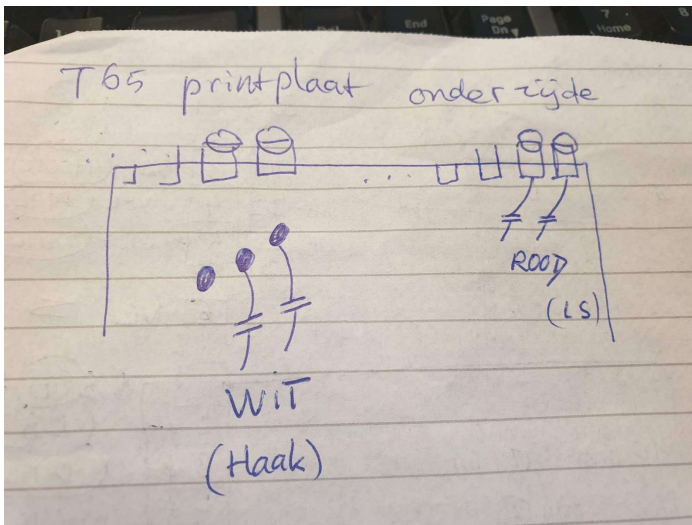 End
Page
Dn
7
Home
8
T65 printplaat onderzijde
ROOD
(LS)
WIT
(Haak)